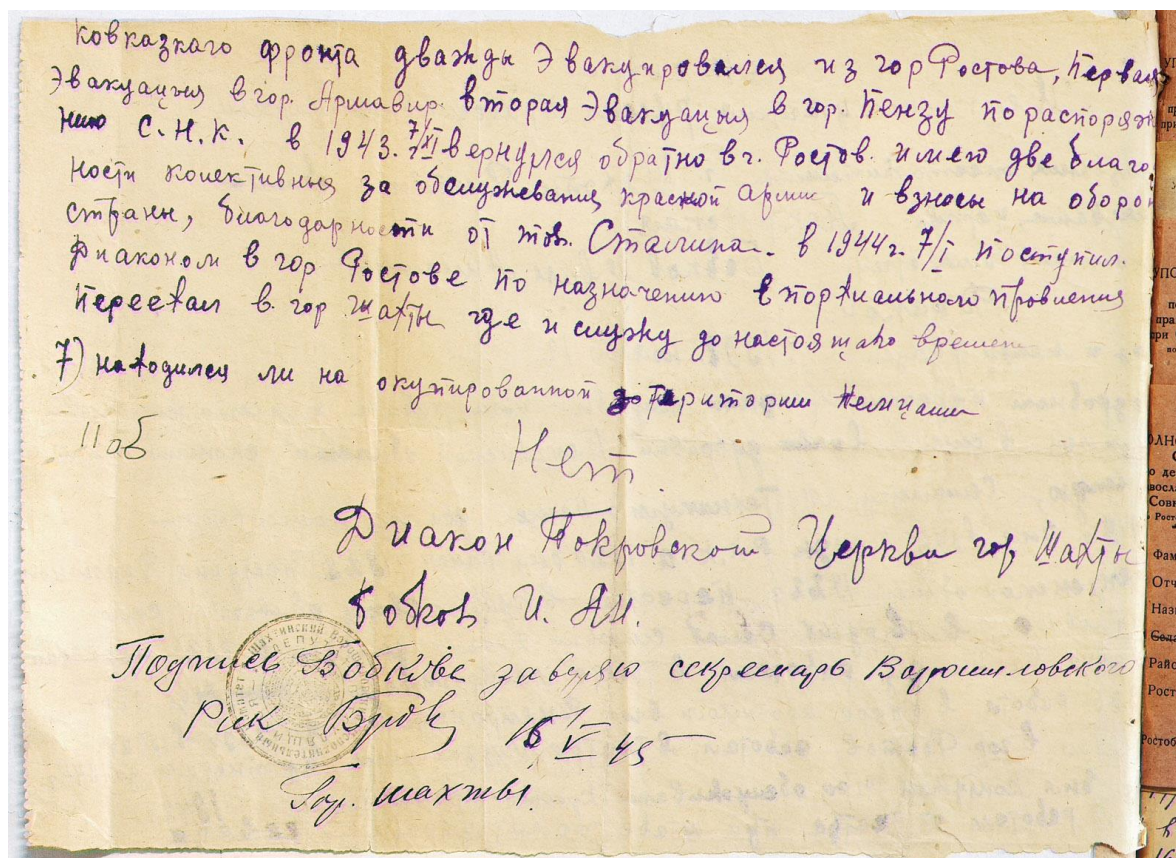 ковказкаго фронта дважды Эвакуировался из гор Ростова, Первая
Эвакуацыя в гор. Армавир. вторая Эвакуацыя в гор. Пензу по распоряж
нию С.Н.К. в 1943. 7/XI вернулся обратно в г. Ростов. имею две благо
ности колективныя за обслужевания красной армии и взносы на оборон
страны, благодарности от тов. Сталина. в 1944 г. 7/I поступил.
диаконом в гор Ростове по назначению
переехал в гор Шахты где и служу до настоящаго времени
7) находился ли на окупированной територии Немцами
11 об
Нет.
Диакон Покровской Церкви гор Шахты
Бобков И. Ян.
Подпись Бобкова заверяю секретарь Ворошиловского
Рик 16/V 45
Гор. шахты.
УПО
Сов
Фам
Отч
Назв
Село
Райо
Рост
Ростоб